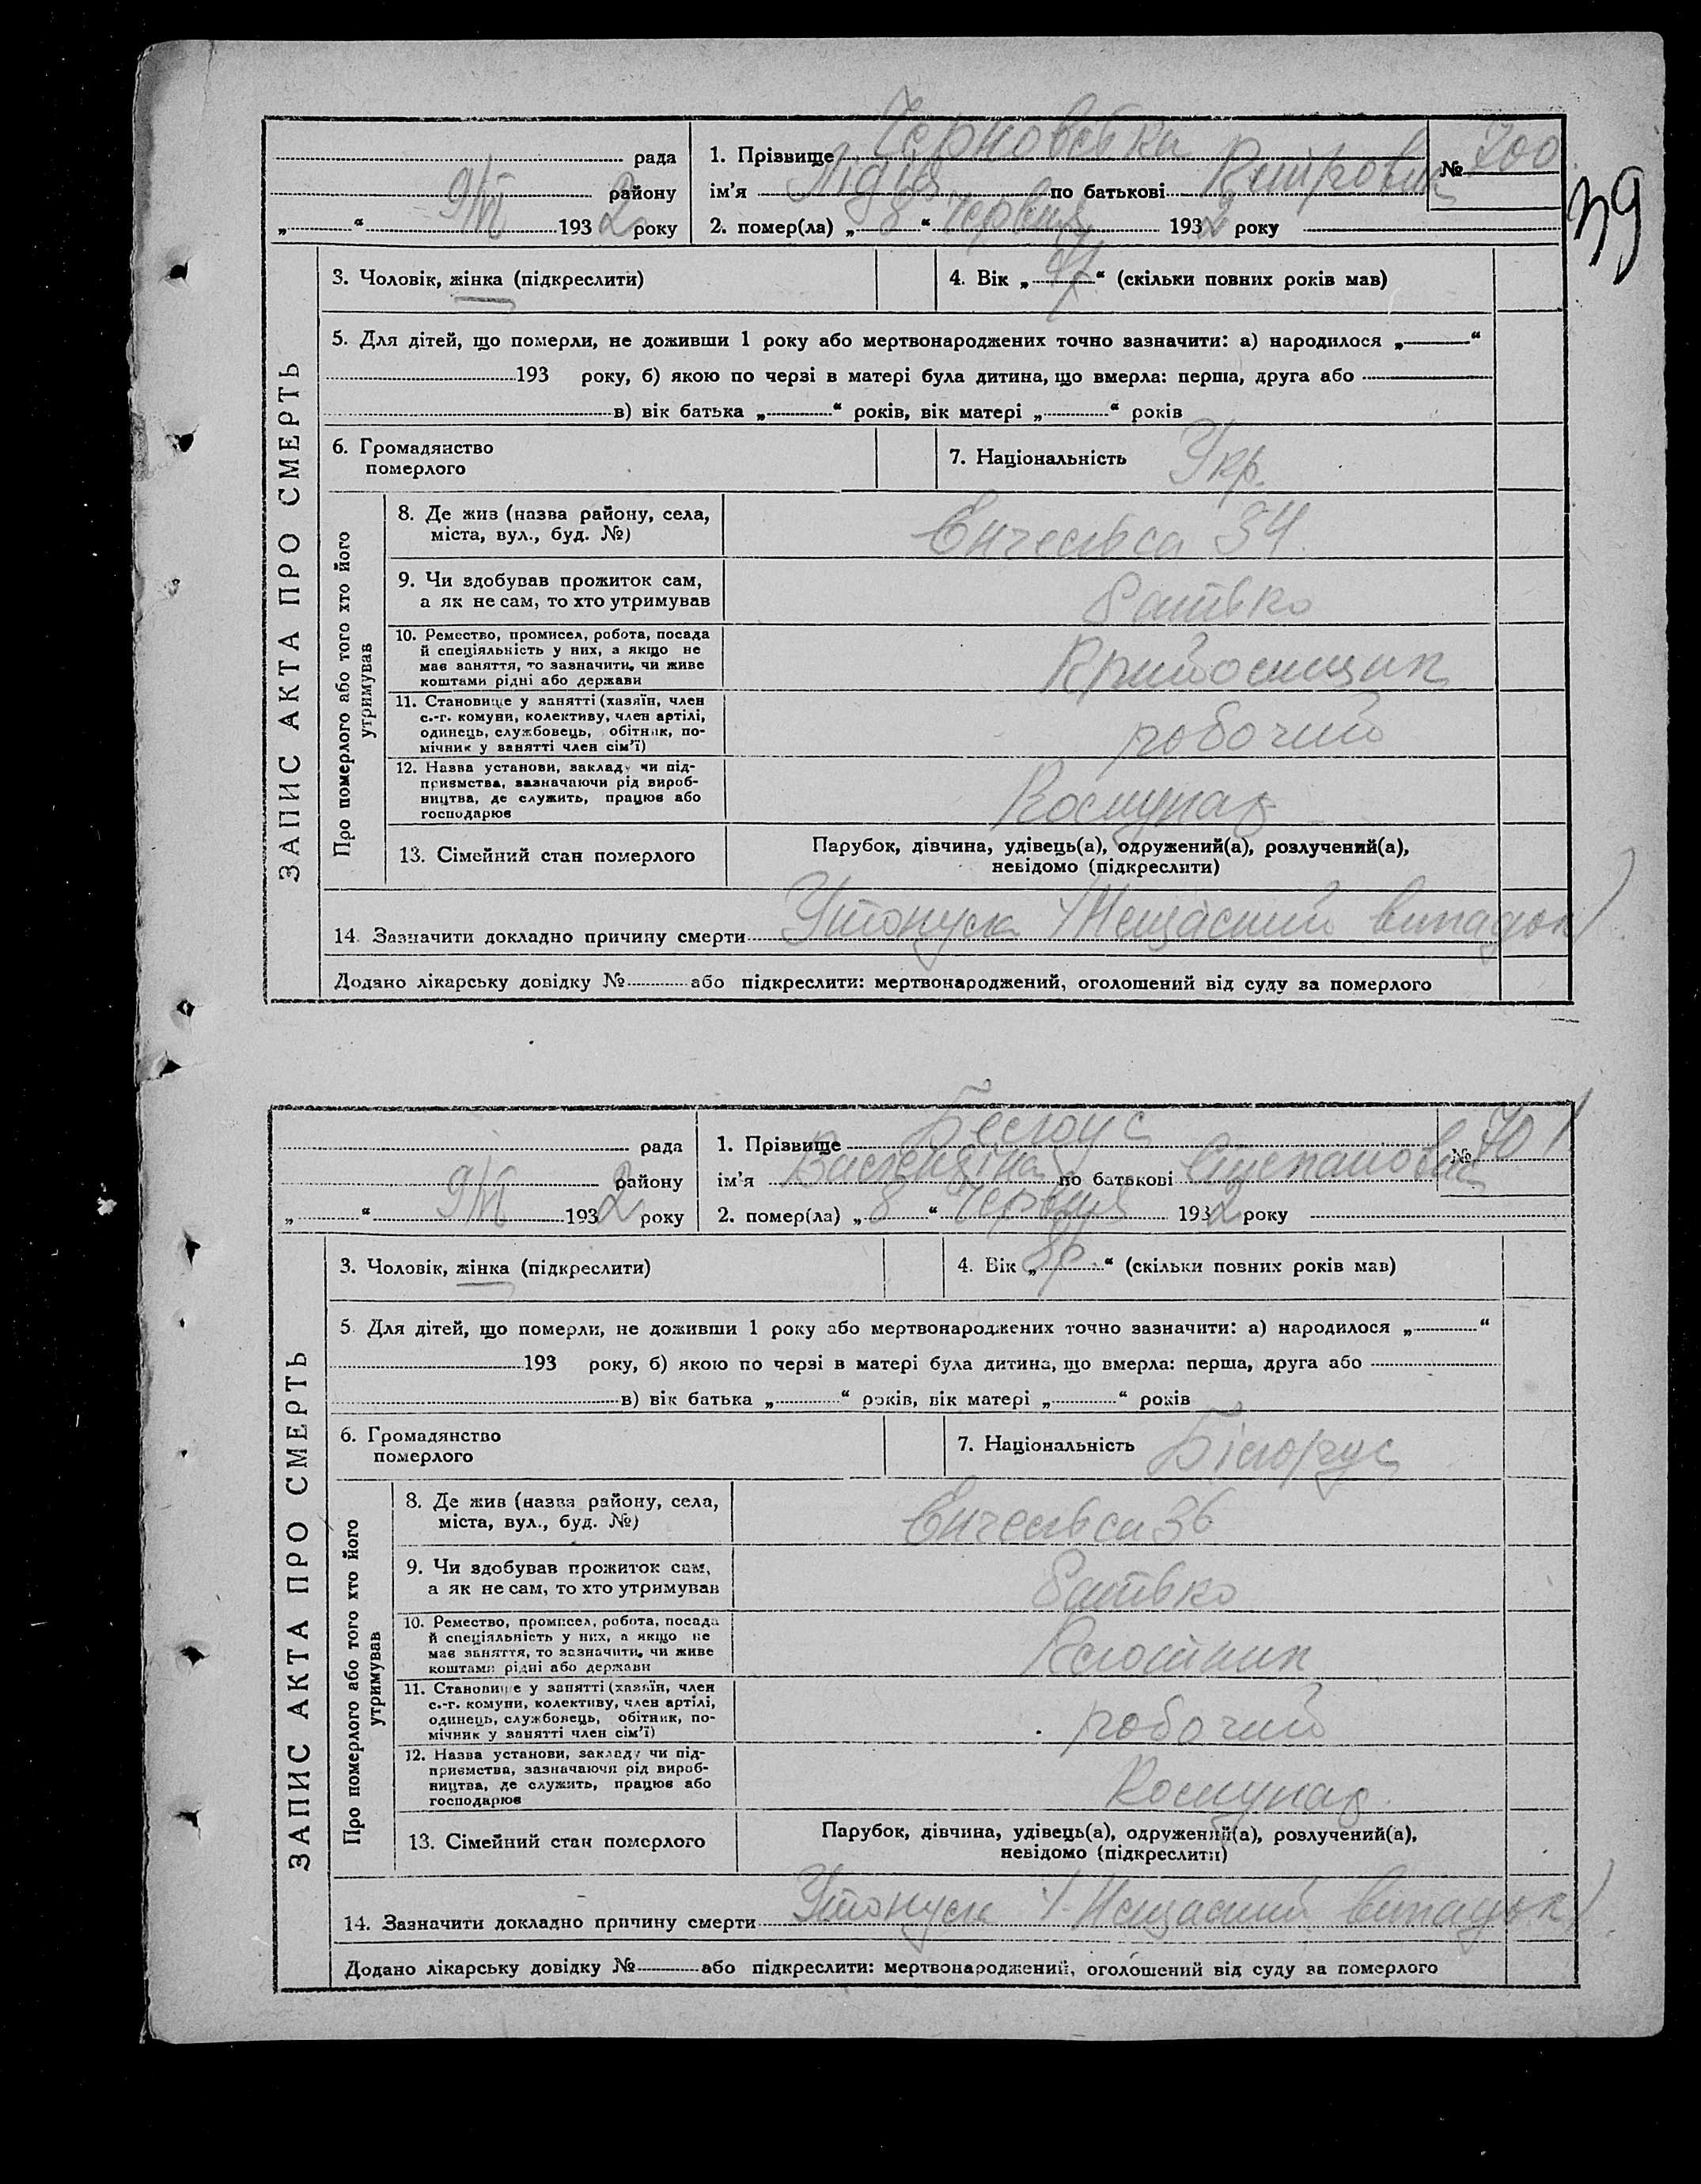 39
рада
району
9/VI 1932 року
1. Прізвище
ім'я Лідія по батькові
2. помер(ла) „ 8 “ Червня 1932 року
№ 700
ЗАПИС АКТА ПРО СМЕРТЬ
3. Чоловік, жінка (підкреслити)
4. Вік „ “ (скільки повних років мав)
5. Для дітей, що померли, не доживши 1 року або мертвонароджених точно зазначити: а) народилося „ “
193 року, б) якою по черзі в матері була дитина, що вмерла: перша, друга або
в) вік батька „ “ років, вік матері „ “ років
6. Громадянство
померлого
7. Національність Укр.
Про померлого або того хто його
утримував
8. Де жив (назва району, села,
міста, вул., буд. №)
Енгельса 34
9. Чи здобував прожиток сам,
а як не сам, то хто утримував
батько
10. Ремество, промисел, робота, посада
й спеціяльність у них, а якщо не
має заняття, то зазначити, чи живе
коштами рідні або держави
11. Становище у занятті (хазяїн, член
с.-г. комуни, колективу, член артілі,
одинець, службовець, обітник, по-
мічник у занятті член сім'ї)
робочий
12. Назва установи, закладу чи під-
приємства, зазначаючи рід вироб-
ництва, де служить, працює або
господарює
13. Сімейний стан померлого
Парубок, дівчина, удівець(а), одружений(а), розлучений(а),
невідомо (підкреслити)
14. Зазначити докладно причину смерти Утонула (Нещасний випадок)
Додано лікарську довідку № або підкреслити: мертвонароджений, оголошений від суду за померлого
рада
району
9/VI 1932 року
1. Прізвище Белоус
ім'я Валентіна по батькові Степановна
2. помер(ла) „ 8 “ Червня 1932 року
№ 701
ЗАПИС АКТА ПРО СМЕРТЬ
3. Чоловік, жінка (підкреслити)
4. Вік „ 8р. “ (скільки повних років мав)
5. Для дітей, що померли, не доживши 1 року або мертвонароджених точно зазначити: а) народилося „ “
193 року, б) якою по черзі в матері була дитина, що вмерла: перша, друга або
в) вік батька „ “ років, вік матері „ “ років
6. Громадянство
померлого
7. Національність Білорус
Про померлого або того хто його
утримував
8. Де жив (назва району, села,
міста, вул., буд. №)
Енгельса 36
9. Чи здобував прожиток сам,
а як не сам, то хто утримував
батько
10. Ремество, промисел, робота, посада
й спеціяльність у них, а якщо не
має заняття, то зазначити, чи живе
коштами рідні або держави
11. Становище у занятті (хазяїн, член
с.-г. комуни, колективу, член артілі,
одинець, службовець, обітник, по-
мічник у занятті член сім'ї)
робочий
12. Назва установи, закладу чи під-
приємства, зазначаючи рід вироб-
ництва, де служить, працює або
господарює
13. Сімейний стан померлого
Парубок, дівчина, удівець(а), одружений(а), розлучений(а),
невідомо (підкреслити)
14. Зазначити докладно причину смерти Утонула (Нещасний випадок)
Додано лікарську довідку № або підкреслити: мертвонароджений, оголошений від суду за померлого